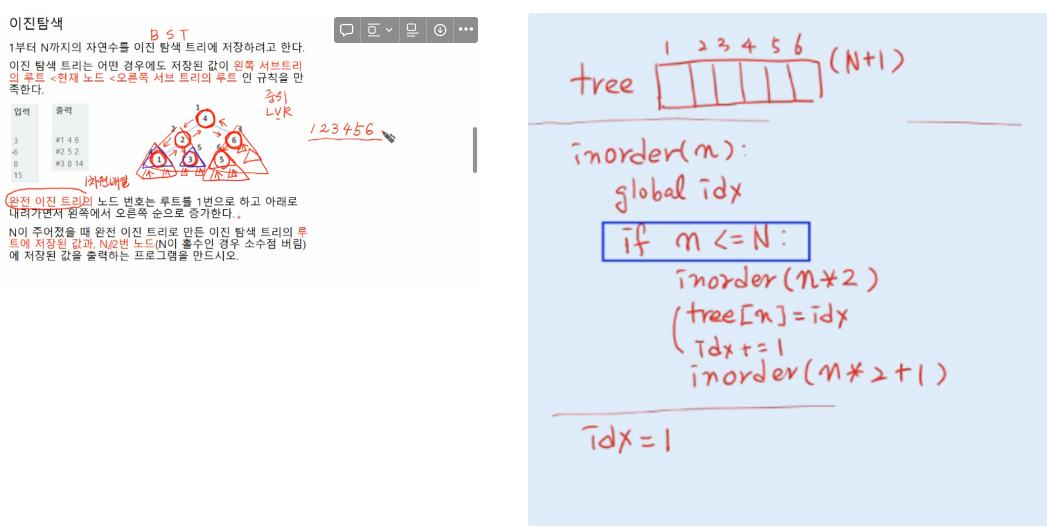 이진탐색
B S T
1부터 N까지의 자연수를 이진 탐색 트리에 저장하려고 한다.
이진 탐색 트리는 어떤 경우에도 저장된 값이 왼쪽 서브트리
의 루트 <현재 노드 <오른쪽 서브 트리의 루트 인 규칙을 만
족한다.
중위
LVR
입력
출력
3
6
8
15
#1 4 6
#2 5 2
#3 8 14
1
4
2
2
3
6
4
1
5
3
6
5
1 2 3 4 5 6
1차원배열
완전 이진 트리의 노드 번호는 루트를 1번으로 하고 아래로
내려가면서 왼쪽에서 오른쪽 순으로 증가한다.
N이 주어졌을 때 완전 이진 트리로 만든 이진 탐색 트리의 루
트에 저장된 값과, N/2번 노드(N이 홀수인 경우 소수점 버림)
에 저장된 값을 출력하는 프로그램을 만드시오.
1 2 3 4 5 6
tree (N+1)
inorder(n):
global idx
if n <= N :
inorder(n*2)
tree[n]=idx
idx += 1
inorder(n*2+1)
idx = 1